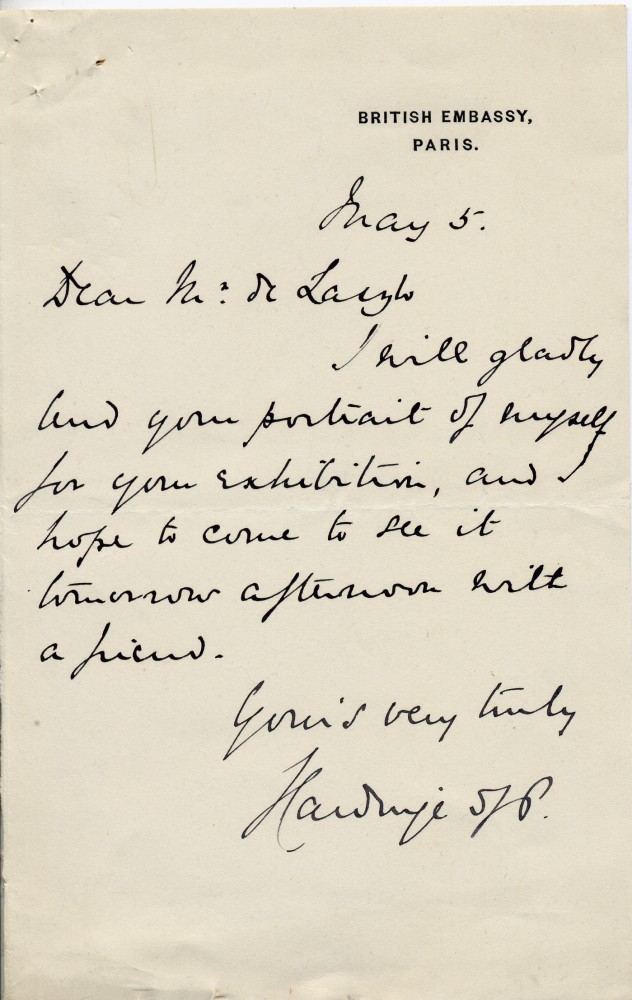 BRITISH EMBASSY,
PARIS.
May 5.
Dear Mr. de Laszlo
I will gladly
lend your portrait of myself
for your exhibition, and I
hope to come to see it
tomorrow afternoon with
a friend.
Yours very truly
Hardinge of P.